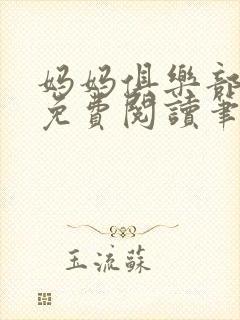 妈妈俱樂部
免費閱讀筆
玉流蘇